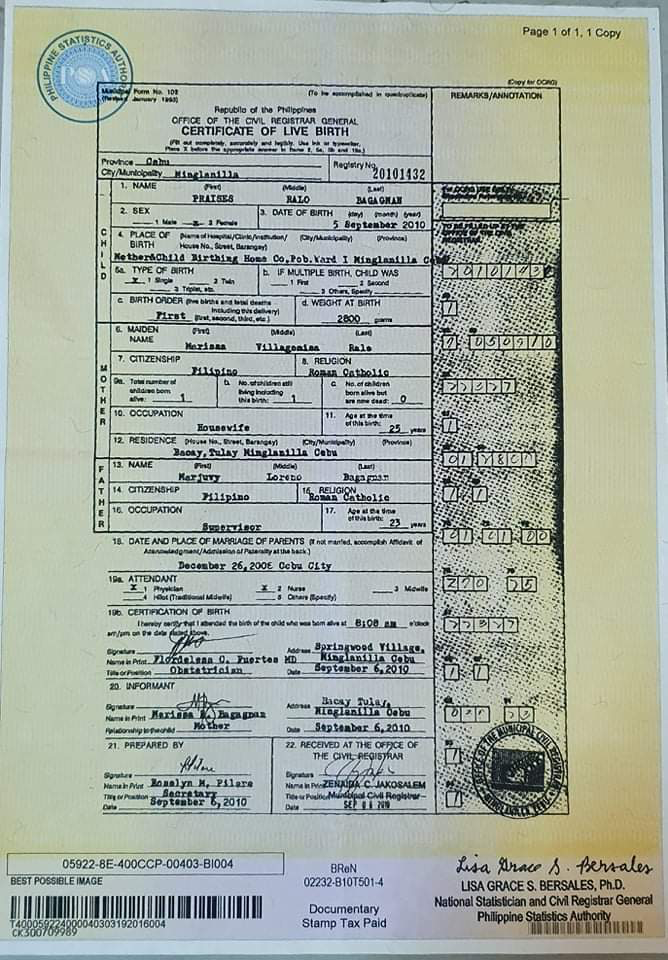 Page 1 of 1, 1 Copy
PHILIPPINE STATISTICS AUTHORITY
PSA
(Copy for OCRG)
Municipal Form No. 102
(Revised January 1993)
(To be accomplished in quadruplicate)
REMARKS/ANNOTATION
Republic of the Philippines
OFFICE OF THE CIVIL REGISTRAR GENERAL
CERTIFICATE OF LIVE BIRTH
(Fill out completely, accurately and legibly. Use ink or typewriter.
Place X before the appropriate answer in Items 2, 5a, 5b and 19a.)
Province Cebu
City/Municipality Minglanilla
Registry No. 20101432
CHILD
1. NAME (First) (Middle) (Last)
PRAISES RALO BAGAGNAN
2. SEX
1 Male X 2 Female
3. DATE OF BIRTH (day) (month) (year)
5 September 2010
4. PLACE OF BIRTH (Name of Hospital/Clinic/Institution/ (City/Municipality) (Province)
House No., Street, Barangay)
Mother&Child Birthing Home Co,Pob.Ward I Minglanilla
5a. TYPE OF BIRTH
X 1 Single 2 Twin
3 Triplet, etc.
b. IF MULTIPLE BIRTH, CHILD WAS
1 First 2 Second
3 Others, Specify
c. BIRTH ORDER (live births and fetal deaths
including this delivery)
First (first, second, third, etc.)
d. WEIGHT AT BIRTH
2800 grams
MOTHER
6. MAIDEN NAME (First) (Middle) (Last)
7. CITIZENSHIP
Filipino
8. RELIGION
Roman Catholic
9a. Total number of
children born
alive: 1
b. No. of children still
living including
this birth: 1
c. No. of children
born alive but
are now dead: 0
10. OCCUPATION
Housewife
11. Age at the time
of this birth: 25 years
12. RESIDENCE (House No., Street, Barangay) (City/Municipality) (Province)
Bacay,Tulay Minglanilla Cebu
FATHER
13. NAME (First) (Middle) (Last)
Marjuvy Loreno Bagagnan
14. CITIZENSHIP
Filipino
15. RELIGION
Roman Catholic
16. OCCUPATION
Supervisor
17. Age at the time
of this birth: 23 years
18. DATE AND PLACE OF MARRIAGE OF PARENTS (If not married, accomplish Affidavit of
Acknowledgment/Admission of Paternity at the back.)
December 26, Cebu City
19a. ATTENDANT
X 1 Physician X 2 Nurse 3 Midwife
4 Hilot (Traditional Midwife) 5 Others (Specify)
19b. CERTIFICATION OF BIRTH
I hereby certify that I attended the birth of the child who was born alive at 8:08 am o'clock
am/pm on the date stated above.
Signature
Name in Print C. Puertes MD
Title or Position Obstetrician
Address Springwood Village,
Minglanilla Cebu
Date September 6,2010
20. INFORMANT
Signature
Name in Print Marissa R. Bagagnan
Relationship to the child Mother
Address Bacay Tulay,
Minglanilla Cebu
Date September 6,2010
21. PREPARED BY
Signature
Name in Print Roselyn M. Pilare
Title or Position Secretary
Date September 6,2010
22. RECEIVED AT THE OFFICE OF
THE CIVIL REGISTRAR
Signature
Name in Print ZENAIDA C. JAKOSALEM
Title or Position Municipal Civil Registrar
Date SEP 2010
05922-8E-400CCP-00403-BI004
BEST POSSIBLE IMAGE
T400059224000040303192016004
CK300709989
BReN
02232-B10T501-4
Documentary
Stamp Tax Paid
Lisa Grace S. Bersales
LISA GRACE S. BERSALES, Ph.D.
National Statistician and Civil Registrar General
Philippine Statistics Authority